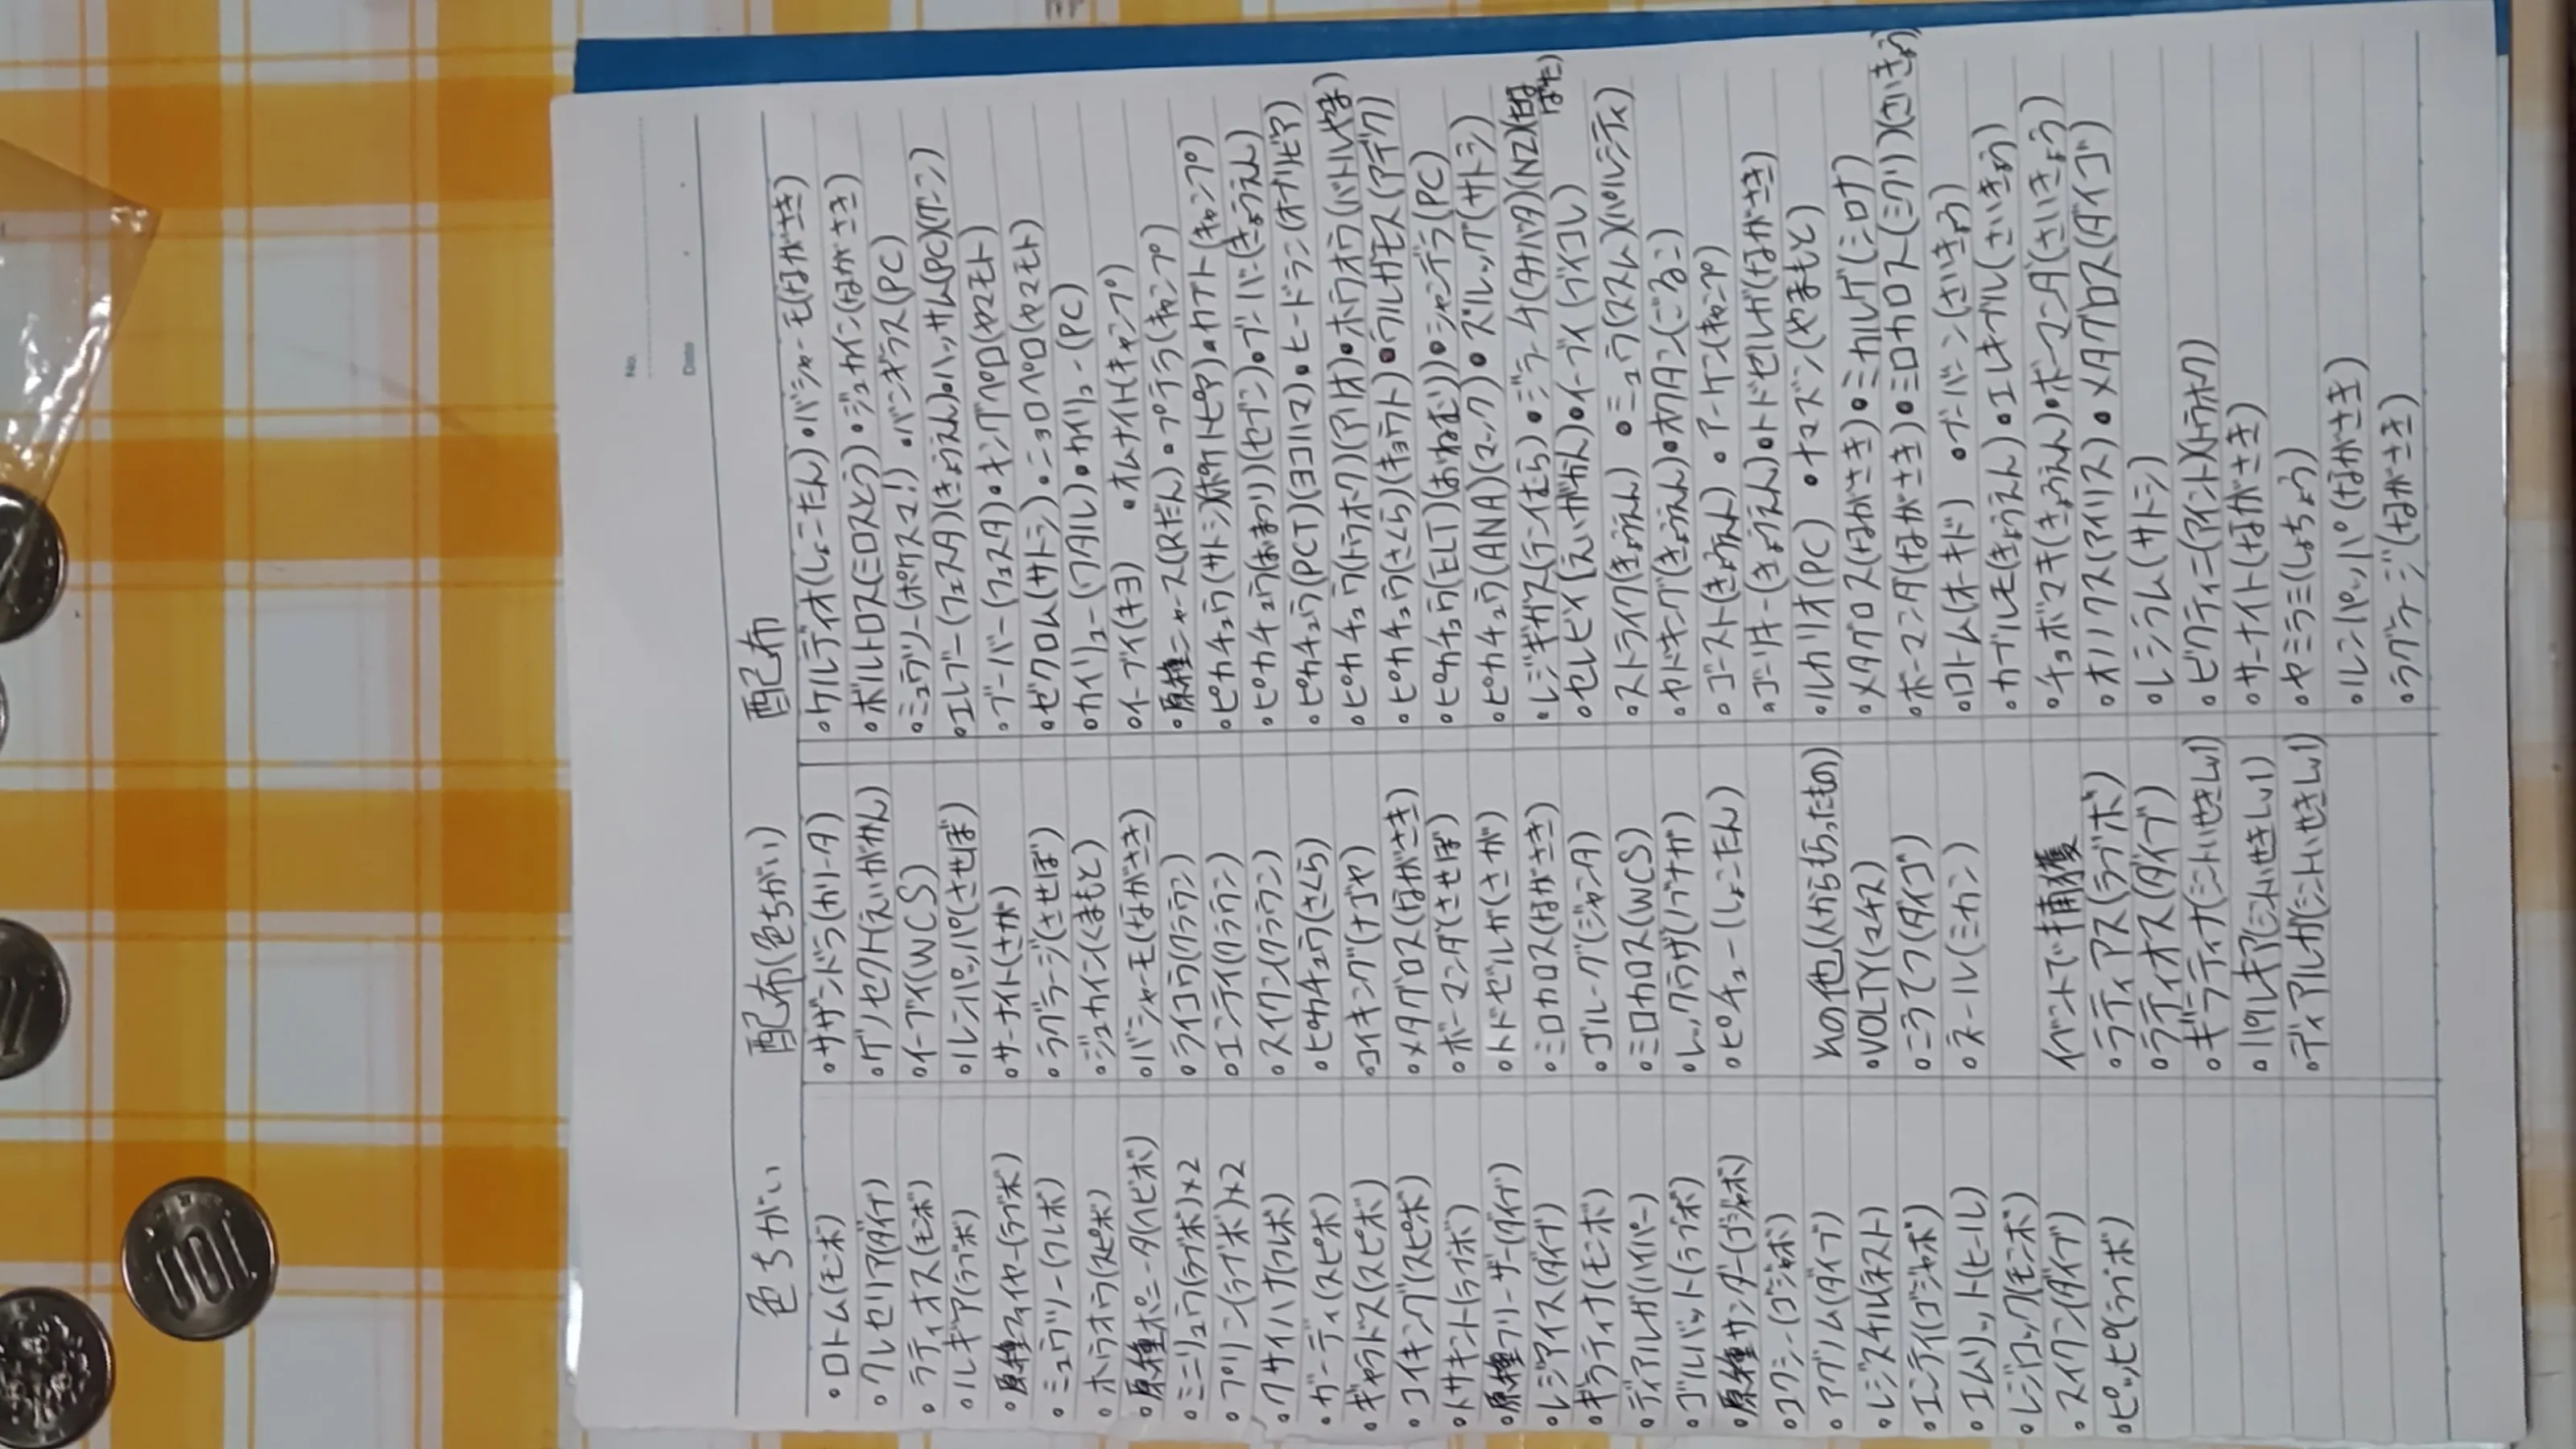 No.
Date
色ちがい
・ロトム(モンボ)
・クレセリア(ダイブ)
・ラティオス(モンボ)
・ルギア(ラブボ)
・原種ファイヤー(ラブボ)
・ミュウツー(フレボ)
・ホウオウ(スピボ)
・原種ポニータ(ヘビボ)
・ミニリュウ(ラブボ)×2
・プリン(ラブボ)×2
・クサイハナ(フレボ)
・ガーディ(スピボ)
・ギャラドス(スピボ)
・コイキング(スピボ)
・トサキント(ラブボ)
・原種フリーザー(ダイブ)
・レジアイス(ダイブ)
・ギラティナ(モンボ)
・ディアルガ(ハイパー)
・ゴルバット(ラブボ)
・原種サンダー(ゴジャボ)
・ユクシー(ゴジャボ)
・アグノム(ダイブ)
・レジスチル(ネスト)
・エンテイ(ゴジャボ)
・エムリット(ヒール)
・レジロック(モンボ)
・スイクン(ダイブ)
・ピッピ(ラブボ)
配布(色ちがい)
・サザンドラ(カリータ)
・ゲノセクト(えいがかん)
・イーブイ(WCS)
・ルンパッパ(させぼ)
・サーナイト(さが)
・ラグラージ(させぼ)
・ジュカイン(くまもと)
・バシャーモ(ながさき)
・ライコウ(クラウン)
・エンテイ(クラウン)
・スイクン(クラウン)
・ピカチュウ(さくら)
・コイキング(ナゴヤ)
・メタグロス(ながさき)
・ボーマンダ(させぼ)
・トドゼルガ(さが)
・ミロカロス(ながさき)
・ゴルーグ(ジャンタ)
・ミロカロス(WCS)
・レックウザ(ノブナガ)
・ピチュー(しょこたん)
その他(人からもらったもの)
・VOLTY(マチス)
・こうてつ(ダイゴ)
・ネール(ミカン)
イベントで捕獲
・ラティアス(ラブボ)
・ラティオス(ダイブ)
・ギラティナ(シントいせきLv1)
・パルキア(シントいせきLv1)
・ディアルガ(シントいせきLv1)
配布
・ケルディオ(しょこたん)・バシャーモ(ながさき)
・ボルトロス(ミロスとう)・ジュカイン(ながさき)
・ミュウツー(ポケスマ!)・バンギラス(PC)
・エレブー(フェスタ)(きょうえん)・ハッサム(PC)(グーン)
・ブーバー(フェスタ)・キングペロ(ヤマモト)
・ゼクロム(サトシ)・ニョロペロ(ヤマモト)
・カイリュー(ワタル)・カイリュー(PC)
・イーブイ(キヨ) ・オムナイト(キャンプ)
・原種ニャース(Rだん)・プテラ(キャンプ)
・ピカチュウ(サトシ)(ポケトピア)・カブト(キャンプ)
・ピカチュウ(おまつり)(セブン)・ブーバー(きょうえん)
・ピカチュウ(PCT)(ヨコハマ)・ヒードラン(オブリビア)
・ピカチュウ(トウホク)(アリオ)・ホウオウ(バトルやま)
・ピカチュウ(さくら)(キョウト)・ウルガモス(アデク)
・ピカチュウ(ELT)(おねむり)・シャンデラ(PC)
・ピカチュウ(ANA)(マック)・ズルッグ(サトシ)
・レジギガス(テンイむら)・ジラーチ(タナバタ)(NZ)(たなばた)
・セレビィ(えいがかん)・イーブイ(ブイコレ)
・ストライク(きょうえん) ・ミュウ(ススム)(パルシティ)
・ヤドキング(きょうえん)・オクタン(ごるこ)
・ゴースト(きょうえん) ・アーケン(キャンプ)
・ゴーリキー(きょうえん)・トドゼルガ(ながさき)
・ルカリオ(PC) ・ナマズン(やまもと)
・メタグロス(ながさき)・ミカルゲ(シロナ)
・ボーマンダ(ながさき)・ミロカロス(ミクリ)(さいきょう)
・ロトム(オーキド) ・ブーバーン(さいきょう)
・カブルモ(きょうえん)・エレキブル(さいきょう)
・チョボマキ(きょうえん)・ボーマンダ(さいきょう)
・オノノクス(アイリス)・メタグロス(ダイゴ)
・レシラム(サトシ)
・ビクティニ(アイント)(トウホク)
・サーナイト(ながさき)
・ヤミラミ(しちょう)
・ルンパッパ(ながさき)
・ラグラージ(ながさき)